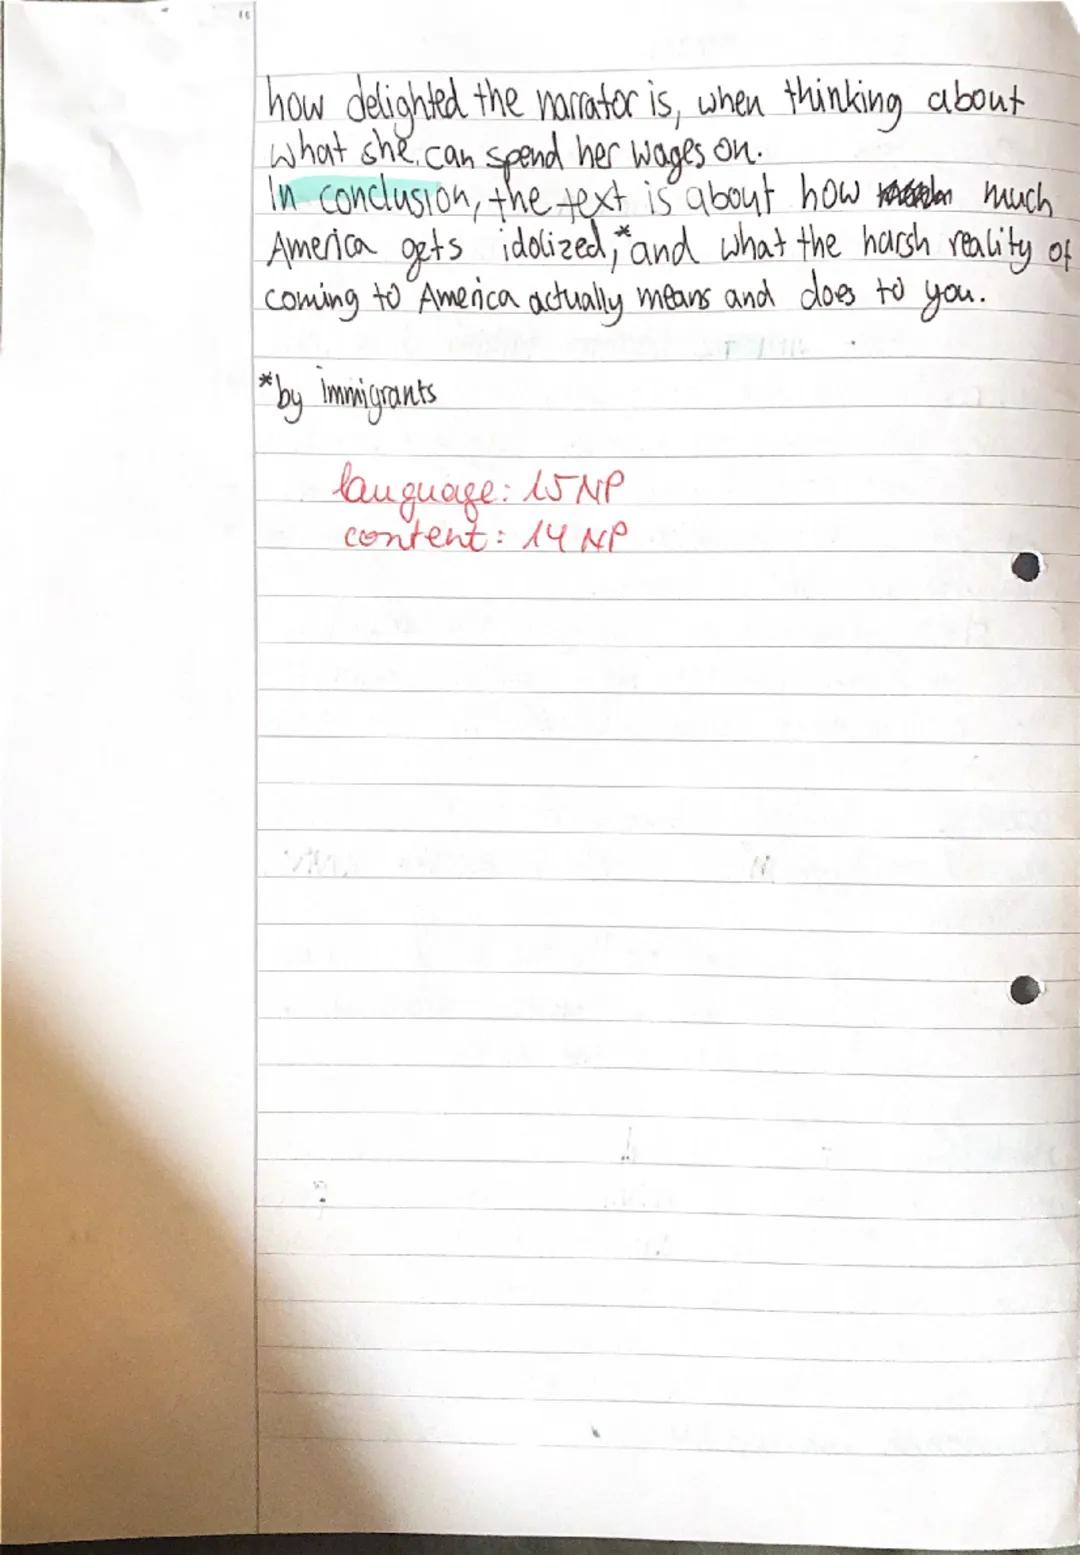 how delighted the narrator is, when thinking about
what she can spend her wages on.
In conclusion, the text is about how much
America gets idolized,* and what the harsh reality of
coming to America actually means and does to you.
*by immigrants
language: 15 NP
content: 14 NP